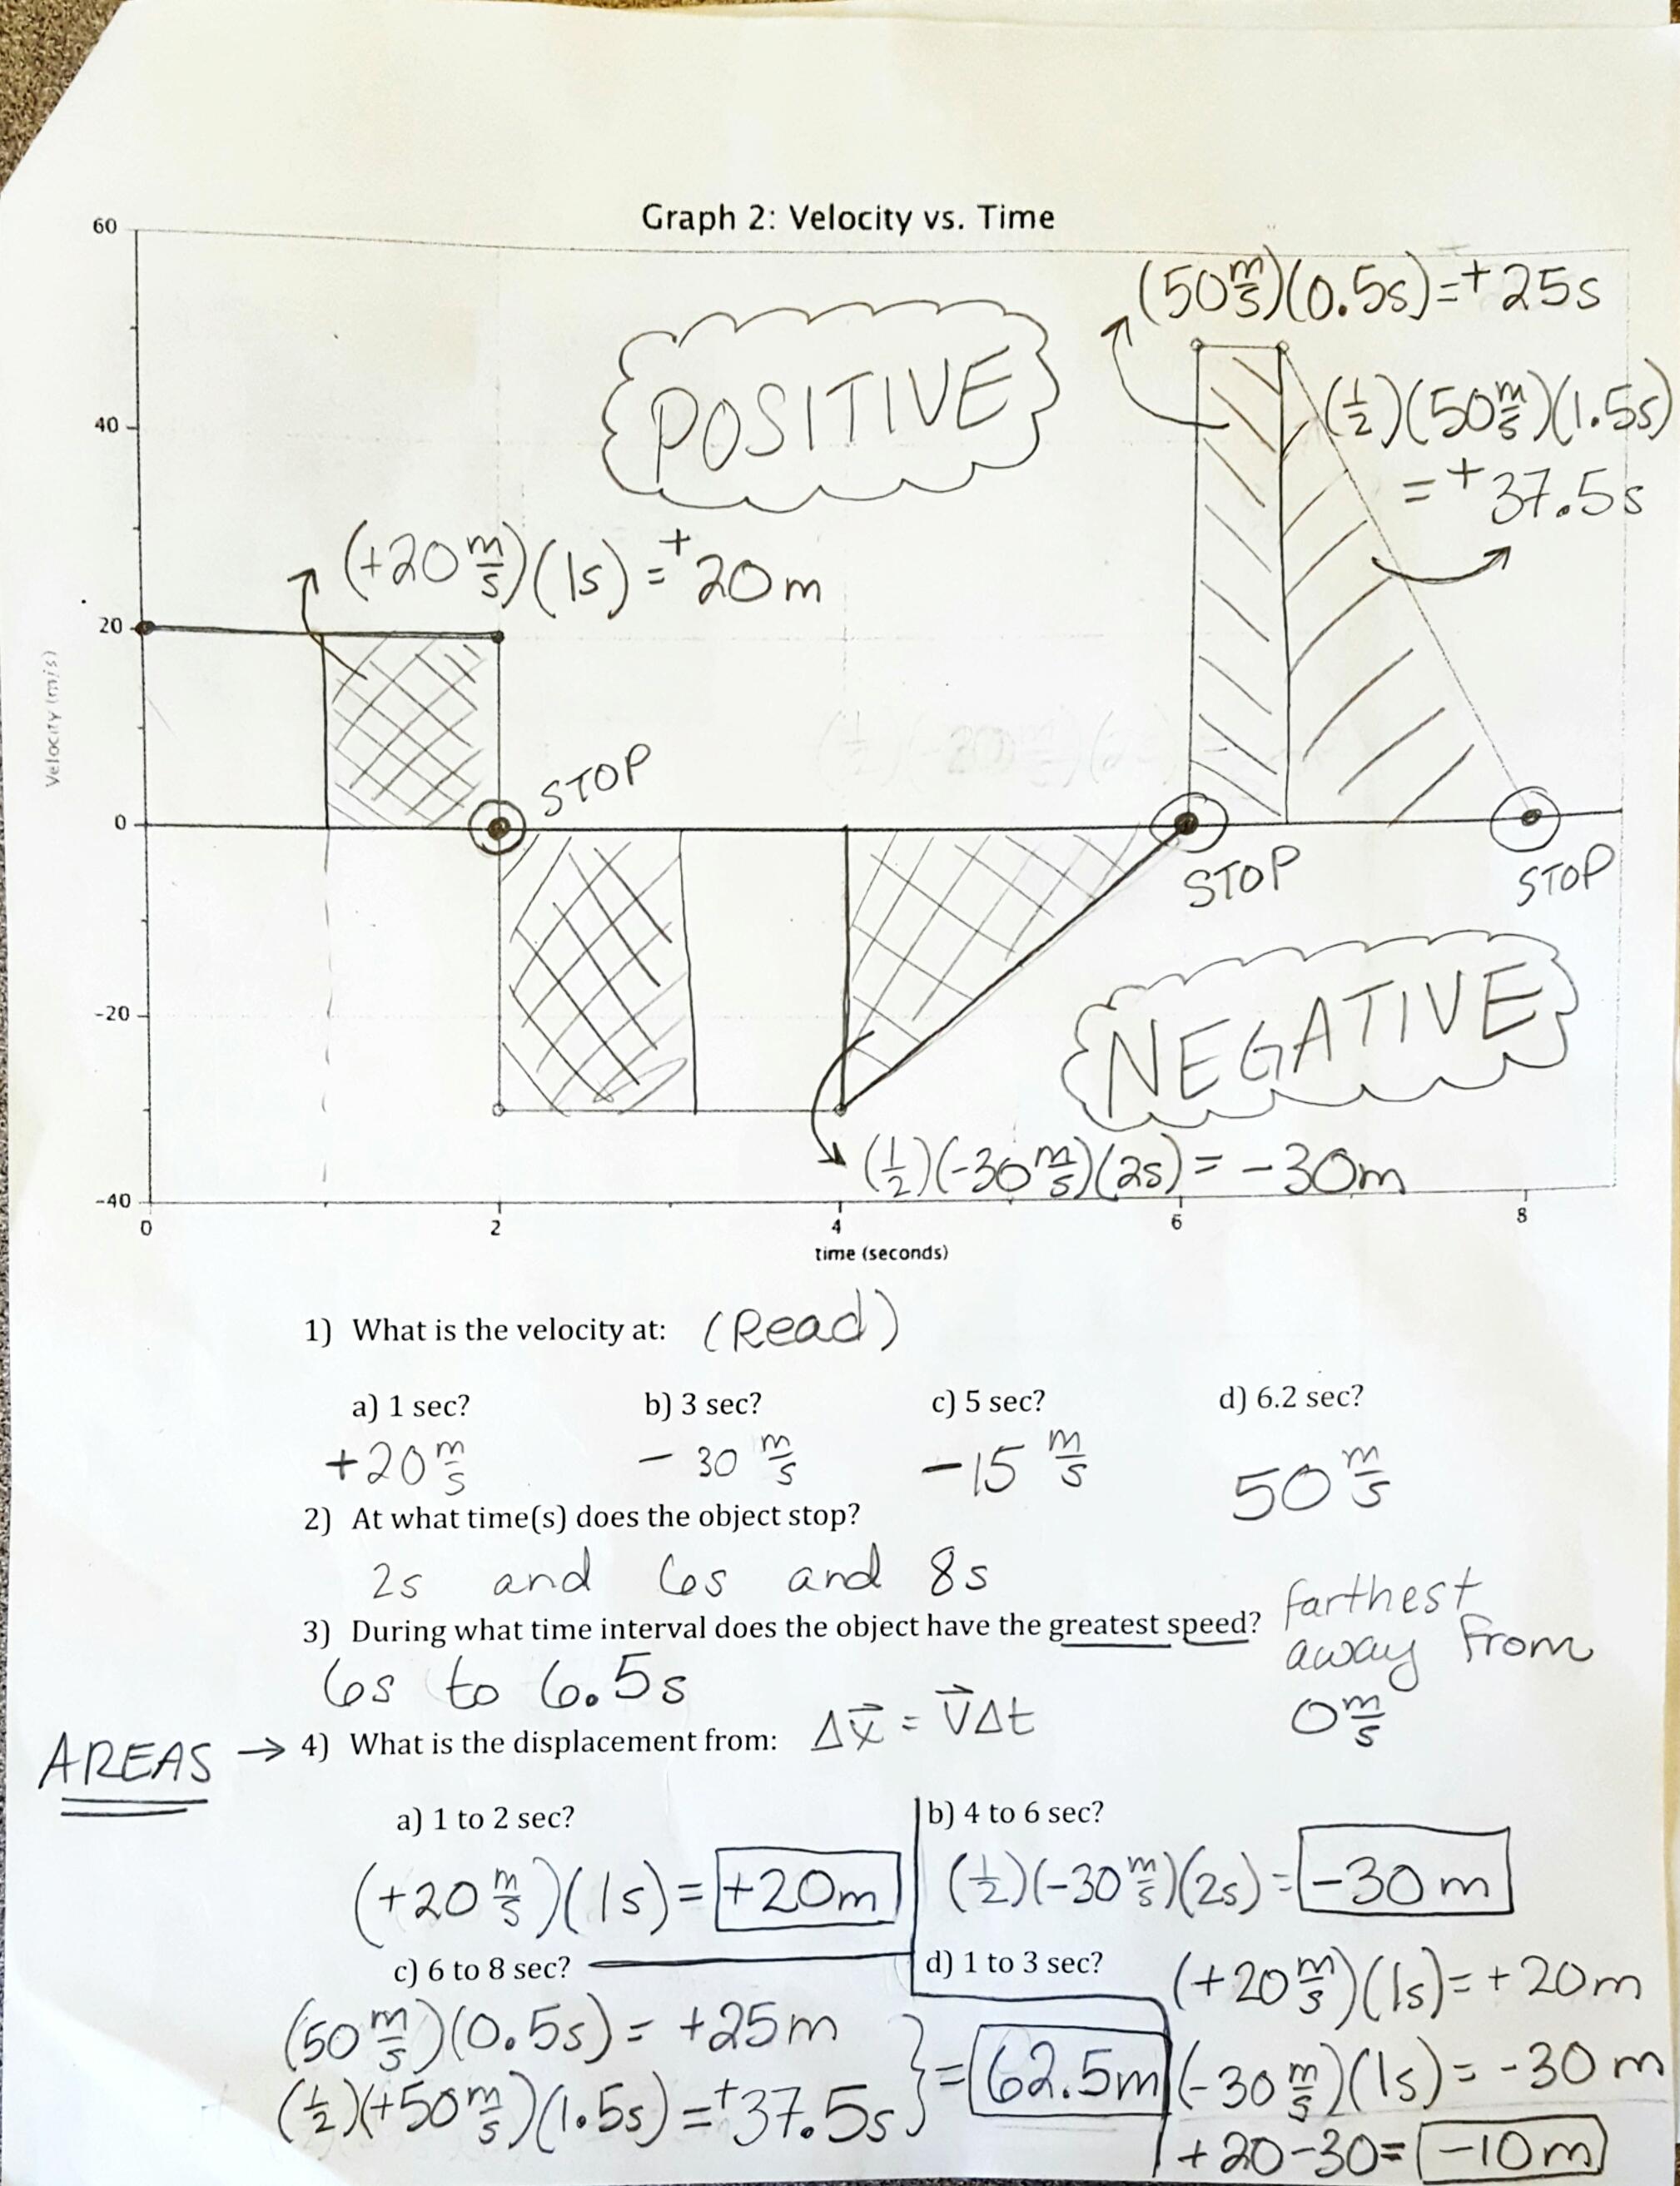 Graph 2: Velocity vs. Time
60
40
20
0
-20
-40
Velocity (m/s)
POSITIVE
(50 m/s)(0.5s)=+25s
(1/2)(50 m/s)(1.5s)
=+37.5s
(+20 m/s)(1s)=+20m
STOP
STOP
STOP
NEGATIVE
(1/2)(-30 m/s)(2s) = -30m
0 2 4 6 8
time (seconds)
1) What is the velocity at: (Read)
a) 1 sec? b) 3 sec? c) 5 sec? d) 6.2 sec?
+20 m/s - 30 m/s -15 m/s 50 m/s
2) At what time(s) does the object stop?
2s and 6s and 8s
3) During what time interval does the object have the greatest speed?
farthest
away from
0 m/s
6s to 6.5s
AREAS → 4) What is the displacement from: Δx⃗ = v⃗Δt
a) 1 to 2 sec? b) 4 to 6 sec?
(+20 m/s)(1s)= +20m (1/2)(-30 m/s)(2s)= -30m
c) 6 to 8 sec? d) 1 to 3 sec? (+20 m/s)(1s)=+20m
(50 m/s)(0.5s)= +25m
(1/2)(+50 m/s)(1.5s)=+37.5s } = 62.5m
(-30 m/s)(1s)= -30m
+20-30= -10m